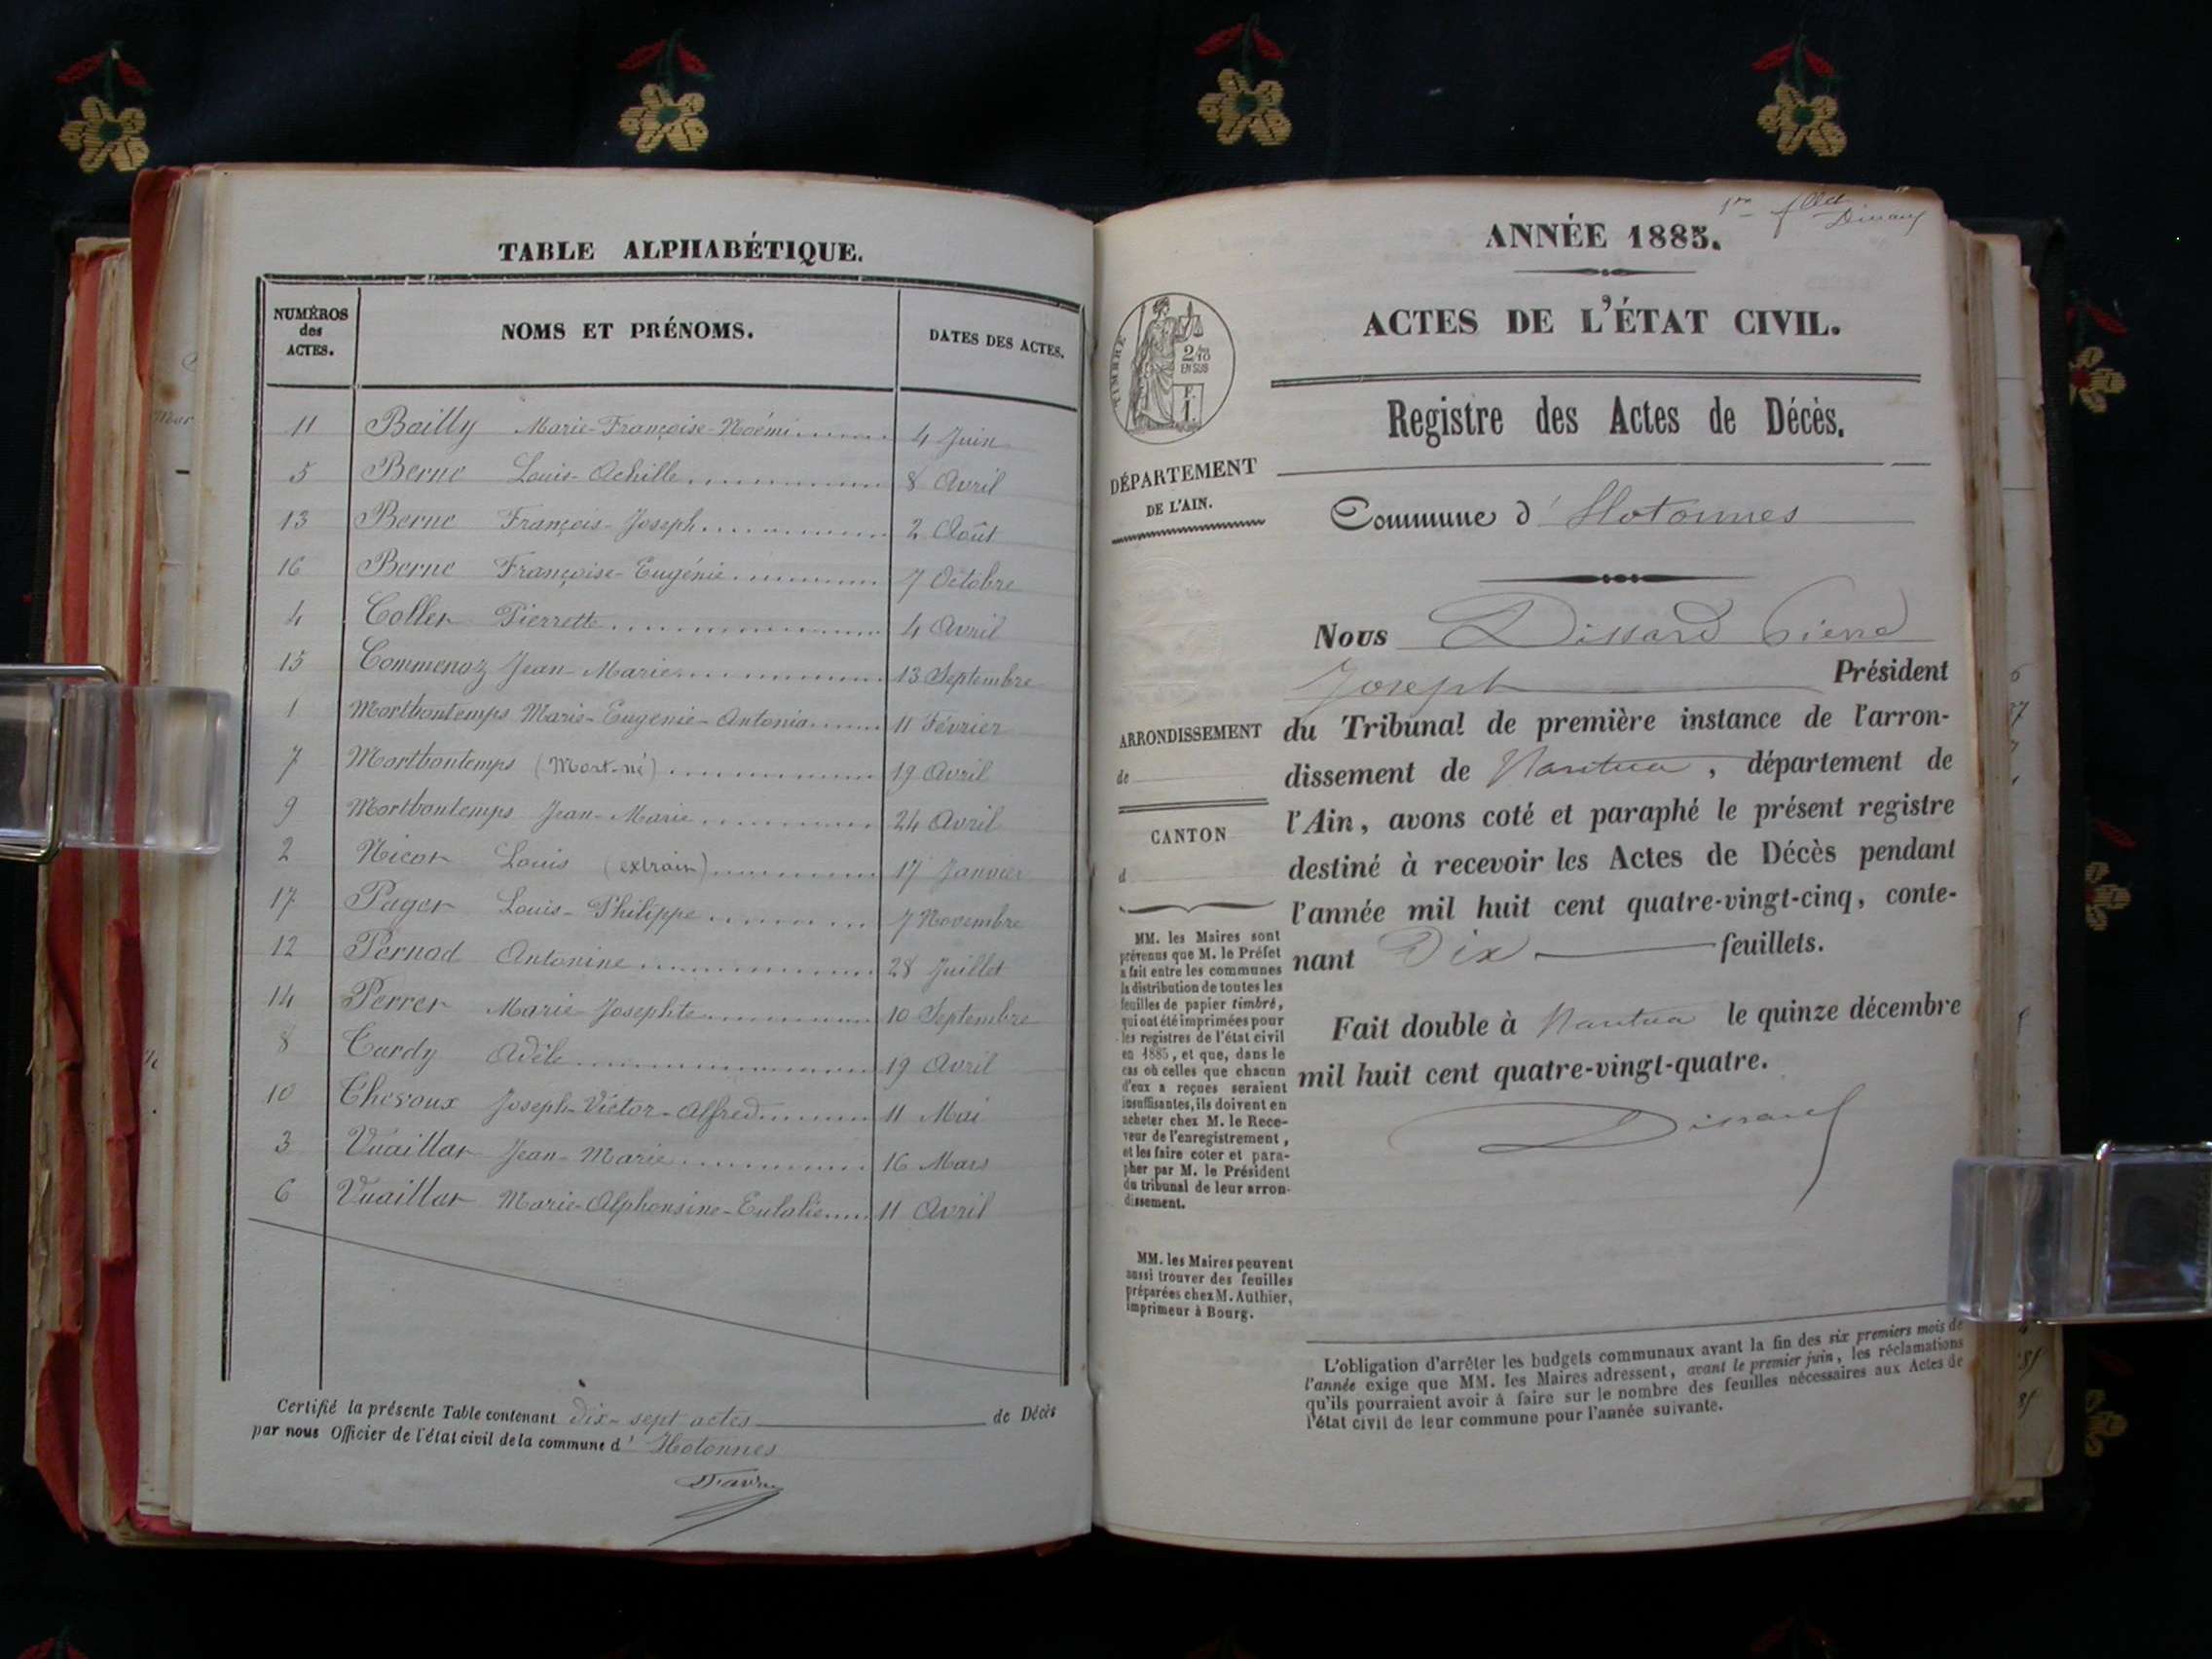 TABLE ALPHABÉTIQUE.
NUMÉROS des ACTES. NOMS ET PRÉNOMS. DATES DES ACTES.
11 Bailly Marie-Françoise-Noémi 4 Juin
5 Berne Louis-Achille 8 Avril
13 Berne François-Joseph 2 Août
16 Berne Françoise-Eugénie 7 Octobre
4 Collet Pierrette 4 Avril
15 Commenoz Jean-Marie 13 Septembre
1 Martbontemps Marie-Eugenie-Antonia 11 Février
7 Martbontemps (Mort-né) 19 Avril
9 Martbontemps Jean-Marie 24 Avril
2 Nicot Louis 17 Janvier
17 Paget Louis-Philippe 7 Novembre
12 Pernod Antonine 28 Juillet
14 Perret Marie Josephte 10 Septembre
8 Tardy Adèle 19 Avril
10 Thévoux Joseph-Victor-Alfred 11 Mai
3 Vuaillat Jean-Marie 16 Mars
6 Vuaillat Marie-Alphonsine-Eulalie 11 Avril
Certifié la présente Table contenant dix-sept actes de Décès
par nous Officier de l'état civil de la commune d' Hotonnes
ANNÉE 1885.
ACTES DE L'ÉTAT CIVIL.
TIMBRE
2/10
EN SUS
Registre des Actes de Décès.
DÉPARTEMENT
DE L'AIN.
Commune d' Hotonnes
Nous Dissard Pierre
Joseph Président
ARRONDISSEMENT
de
du Tribunal de première instance de l'arron-
dissement de Nantua, département de
l'Ain, avons coté et paraphé le présent registre
CANTON
d
destiné à recevoir les Actes de Décès pendant
l'année mil huit cent quatre-vingt-cinq, conte-
nant Dix feuillets.
Fait double à Nantua le quinze décembre
mil huit cent quatre-vingt-quatre.
Dissard
MM. les Maires sont
prévenus que M. le Préfet
a fait entre les communes
la distribution de toutes les
feuilles de papier timbré,
qui ont été imprimées pour
les registres de l'état civil
en 1885, et que, dans le
cas où celles que chacun
d'eux a reçues seraient
insuffisantes, ils doivent en
acheter chez M. le Rece-
veur de l'enregistrement,
et les faire coter et para-
pher par M. le Président
du tribunal de leur arron-
dissement.
MM. les Maires peuvent
aussi trouver des feuilles
préparées chez M. Authier,
imprimeur à Bourg.
L'obligation d'arrêter les budgets communaux avant la fin des six premiers mois de
l'année exige que MM. les Maires adressent, avant le premier juin, les réclamations
qu'ils pourraient avoir à faire sur le nombre des feuilles nécessaires aux Actes de
l'état civil de leur commune pour l'année suivante.